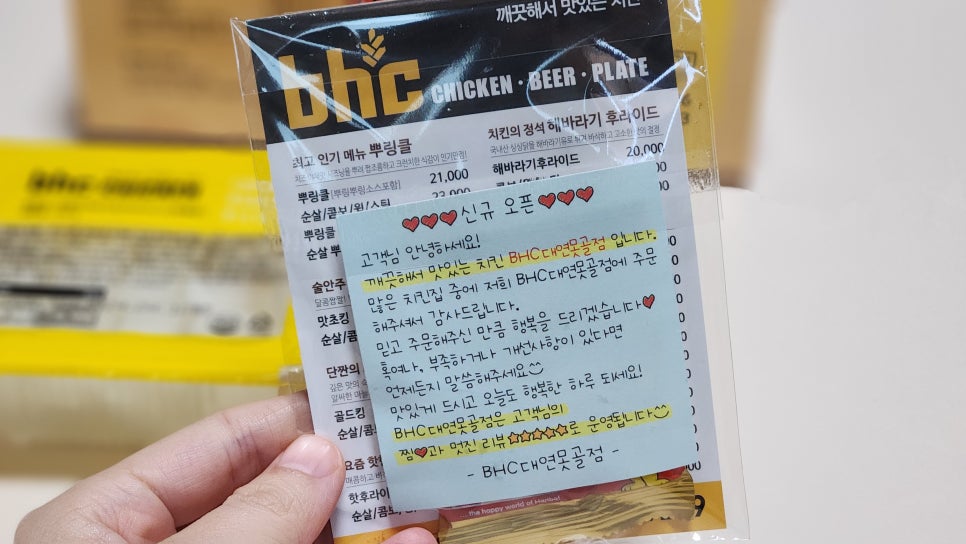 깨끗해서 맛있는 치킨
bhc CHICKEN · BEER · PLATE
최고 인기 메뉴 뿌링클
21,000
뿌링클 [뿌링뿌링소스포함]
순살/콤보/윙/스틱
뿌링클
순살 뿌
술안주
달콤짭짤!
맛초킹
순살/콤
단짠의
깊은 맛의
골드킹
순살/콤
요즘 핫
핫후라이
순살/콤보/
치킨의 정석 해바라기 후라이드
해바라기후라이드
20,000
♥♥♥신규 오픈♥♥♥
고객님 안녕하세요!
깨끗해서 맛있는 치킨 BHC대연못골점 입니다.
많은 치킨집 중에 저희 BHC대연못골점에 주문
해주셔서 감사드립니다.
믿고 주문해주신 만큼 행복을 드리겠습니다♥
혹여나, 부족하거나 개선사항이 있다면
언제든지 말씀해주세요☺
맛있게 드시고 오늘도 행복한 하루 되세요!
BHC대연못골점은 고객님의
찜♥과 멋진 리뷰☆☆☆☆☆로 운영됩니다☺
- BHC대연못골점 -
... the happy world of Herbet